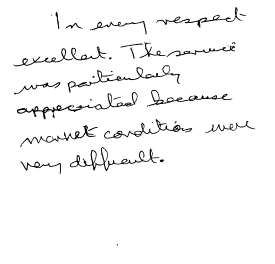 In every respect
excellent. The service
was particularly
appreciated because
market conditions were
very difficult.